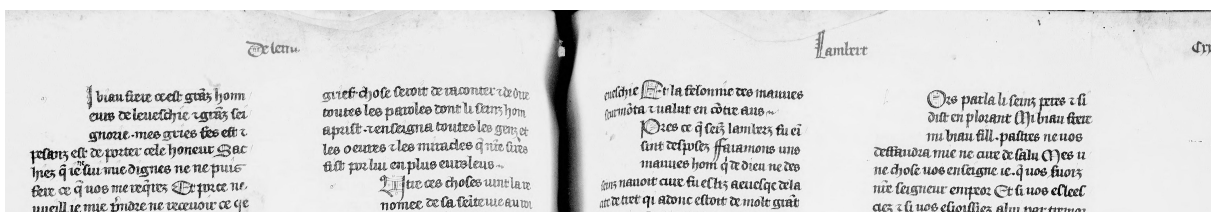 De seint
Lambert
Cxx
biau frere ce est granz honn
eurs de leveschie ⁊ granz sei
gnorie. mes gries fes est ⁊
pesanz est de porter cele honeur Sac
hiez q̄ ie ne sui mie dignes ne ne puis
fere ce q̄ uos me req̄rez Et por ce ne
uueill ie mie p̄ndre ne recevoir ce qe
grief chose seroit de raconter ⁊ de dire
toutes les paroles dont li seinz hom
aprist ⁊ enseigna toutes les genz et
les oeures ⁊ les miracles q̄ n̄re sires
fist por lui en plus eurs leus
Ultre ces choses uint la re
nomee de sa seinte uie au roi
eueschie Et la felonnie des mauues
sourmōta ⁊ ualut en cōtre aus
Pres ce q̄ seīz lamberz fu eī
sint desposez ffaramons uns
mauues hom q̄ de dieu ne des
seinz nauoit cure fu esluz aeuesqe de la
cite de tret qi adonc estoit de molt grāt
Ors parla li seinz peres ⁊ si
dist en plorant Mi biau frere
mi biau fill. pastres ne uos
deffaudra mie ne cure de salu Mes u
ne chose uos enseigne ie. q̄ uos fuoiz
n̄re seigneur empeor Et si uos eslees
ciez ⁊ si uos esioissiez a lui par tremor